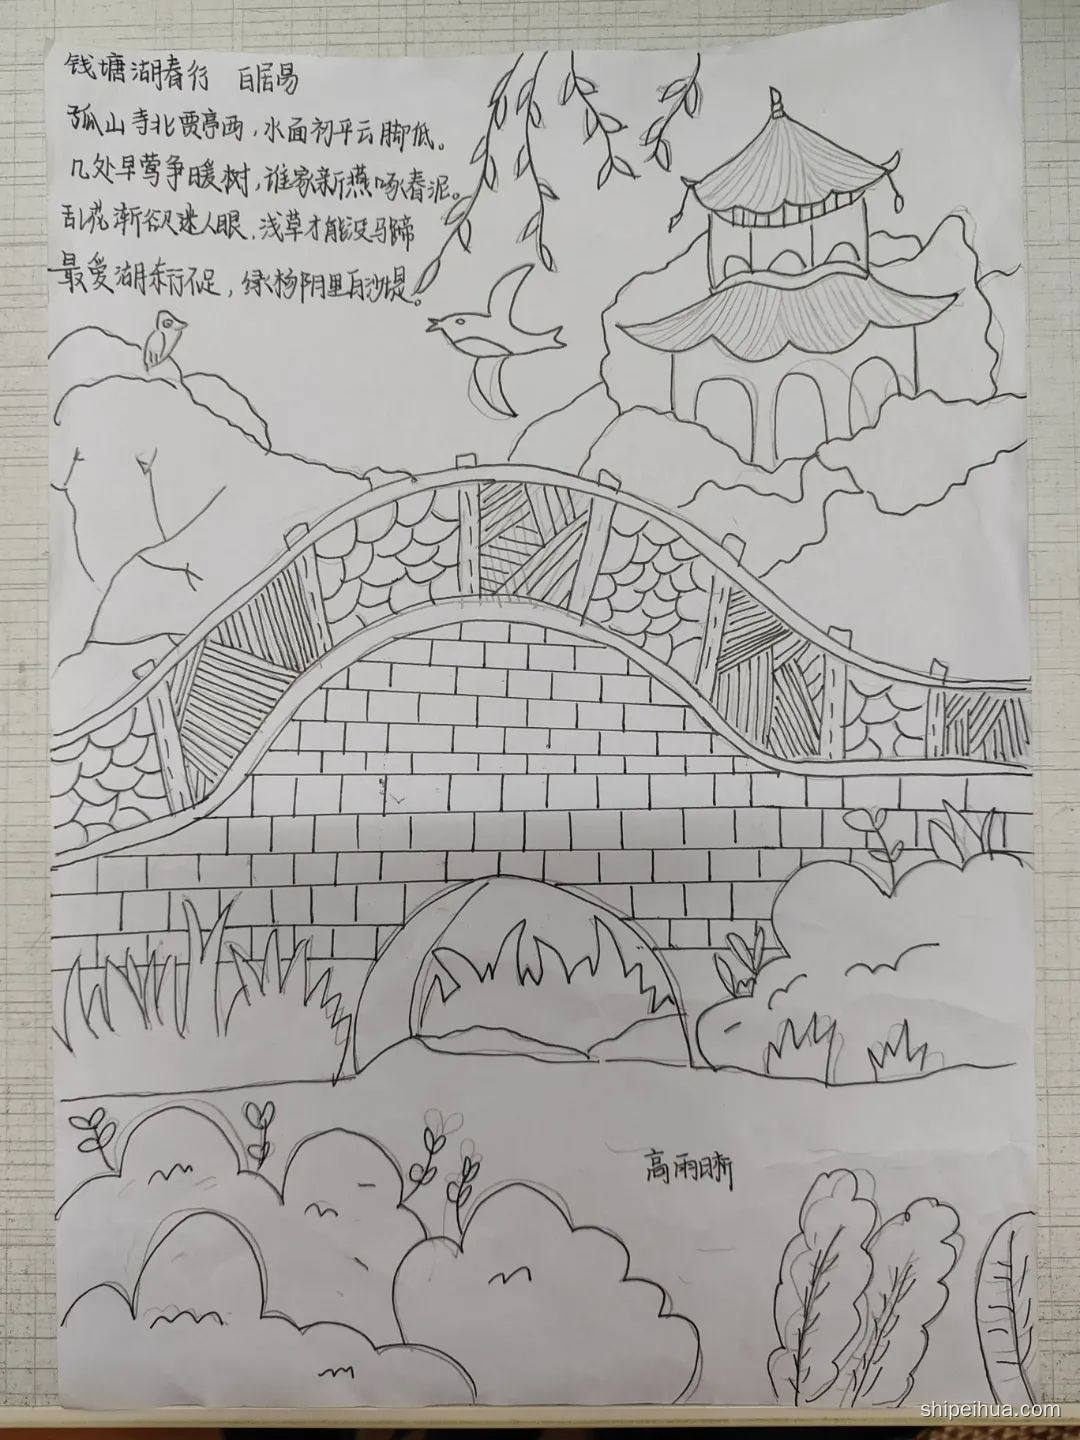 钱塘湖春行 白居易
孤山寺北贾亭西，水面初平云脚低。
几处早莺争暖树，谁家新燕啄春泥。
乱花渐欲迷人眼，浅草才能没马蹄
最爱湖东行不足，绿杨阴里白沙堤。
高雨晣
shipeihua.com